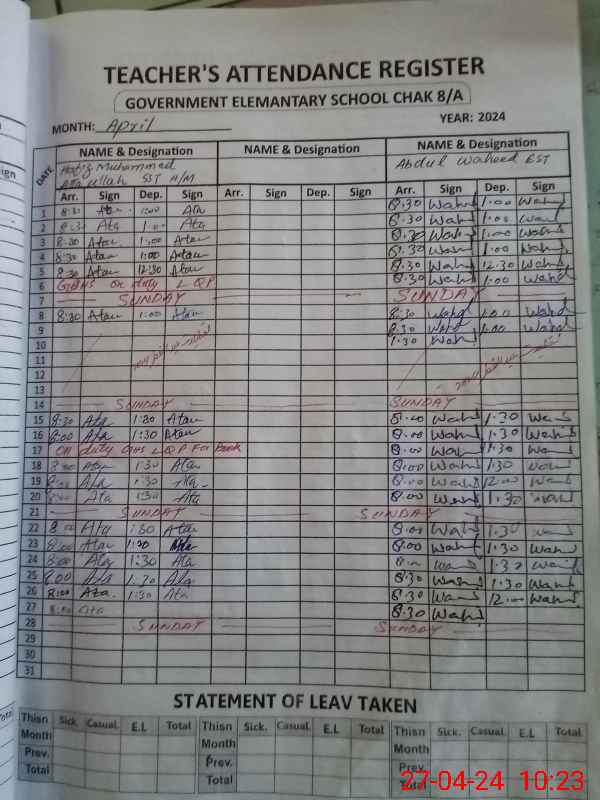 TEACHER'S ATTENDANCE REGISTER
GOVERNMENT ELEMANTARY SCHOOL CHAK 8/A
MONTH: April YEAR: 2024
DATE NAME & Designation NAME & Designation NAME & Designation
Hafiz Muhammad Abdul Waheed EST
Ata ullah SST H/M
Arr. Sign Dep. Sign Arr. Sign Dep. Sign Arr. Sign Dep. Sign
1 8:30 Ata 1:00 Ata 8.30 Wahd 1.00 Wahd
2 8:30 Ata 1:00 Ata 8.30 Wahd 1.00 Wahd
3 8:30 Atau 1:00 Atau 8.30 Wahd 1.00 Wahd
4 8:30 Atau 1:00 Atau 8.30 Wahd 1.00 Wahd
5 8:30 Atau 12:30 Atau 8.30 Wahd 12.30 Wahd
6 on duty 8.30 Wahd 1.00 Wahd
7 SUNDAY SUNDAY
8 8:30 Atau 1:00 Atau 8.30 Wahd 1.00 Wahd
9 8.30 Wahd 1.00 Wahd
10
11
12
13
14 SUNDAY SUNDAY
15 8:30 Ata 1:30 Atau 8.00 Wahd 1.30 Wahd
16 8:00 Ata 1:30 Atau 8.00 Wahd 1.30 Wahd
17 on duty For 8.00 Wahd 1.30 Wahd
18 8:00 Ata 1:30 Ata 8.00 Wahd 1.30 Wahd
19 Ata 1:30 Ata 8.00 Wahd 12.00 Wahd
20 8:00 Ata 1:30 Ata 8.00 Wahd 1.30 Wahd
21 SUNDAY SUNDAY
22 8:00 Ata 1:30 Atau 8.00 Wahd 1.30 Wahd
23 8:00 Atau 1:30 Ata 8.00 Wahd 1.30 Wahd
24 8:00 Ata 1:30 Ata Wahd 1.30 Wahd
25 8:00 Ata 1:30 Ata 8.30 Wahd 1.30 Wahd
26 8:00 Ata. 1:30 Ata 8.30 Wahd 12.00 Wahd
27 8:00 Ata 8.30 Wahd
28 SUNDAY SUNDAY
29
30
31
STATEMENT OF LEAV TAKEN
Thisn Month Sick. Casual. E.L Total Thisn Month Sick. Casual. E.L Total Thisn Month Sick. Casual. E.L Total
Prev. Prev. Prev.
Total Total Total
27-04-24 10:23